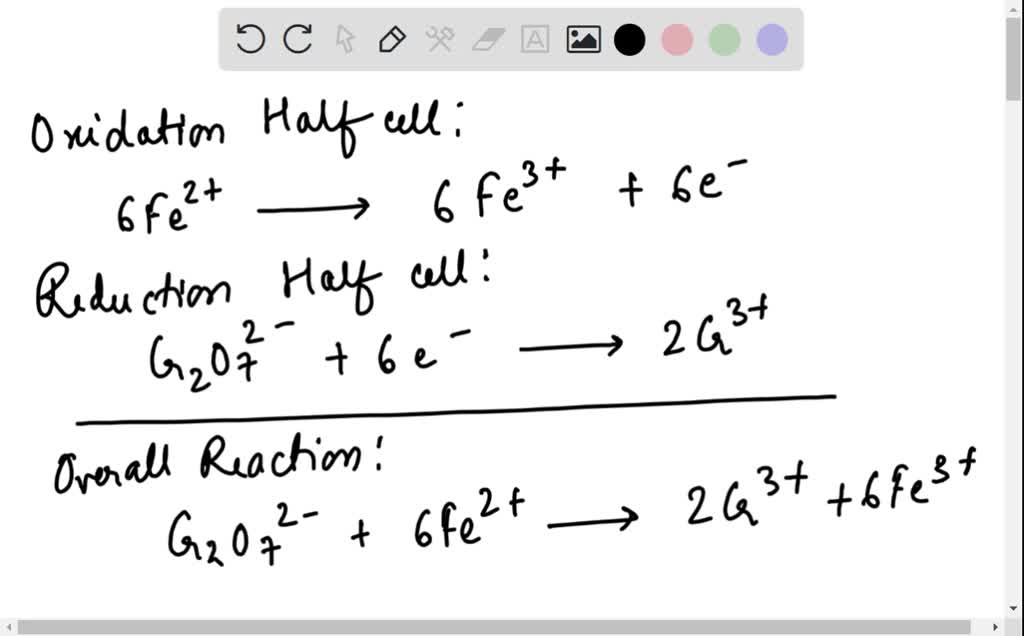 Oxidation Half cell:
6Fe²⁺ ⟶ 6Fe³⁺ + 6e⁻
Reduction Half cell:
Cr₂O₇²⁻ + 6e⁻ ⟶ 2Cr³⁺
Overall Reaction:
Cr₂O₇²⁻ + 6Fe²⁺ ⟶ 2Cr³⁺ + 6Fe³⁺